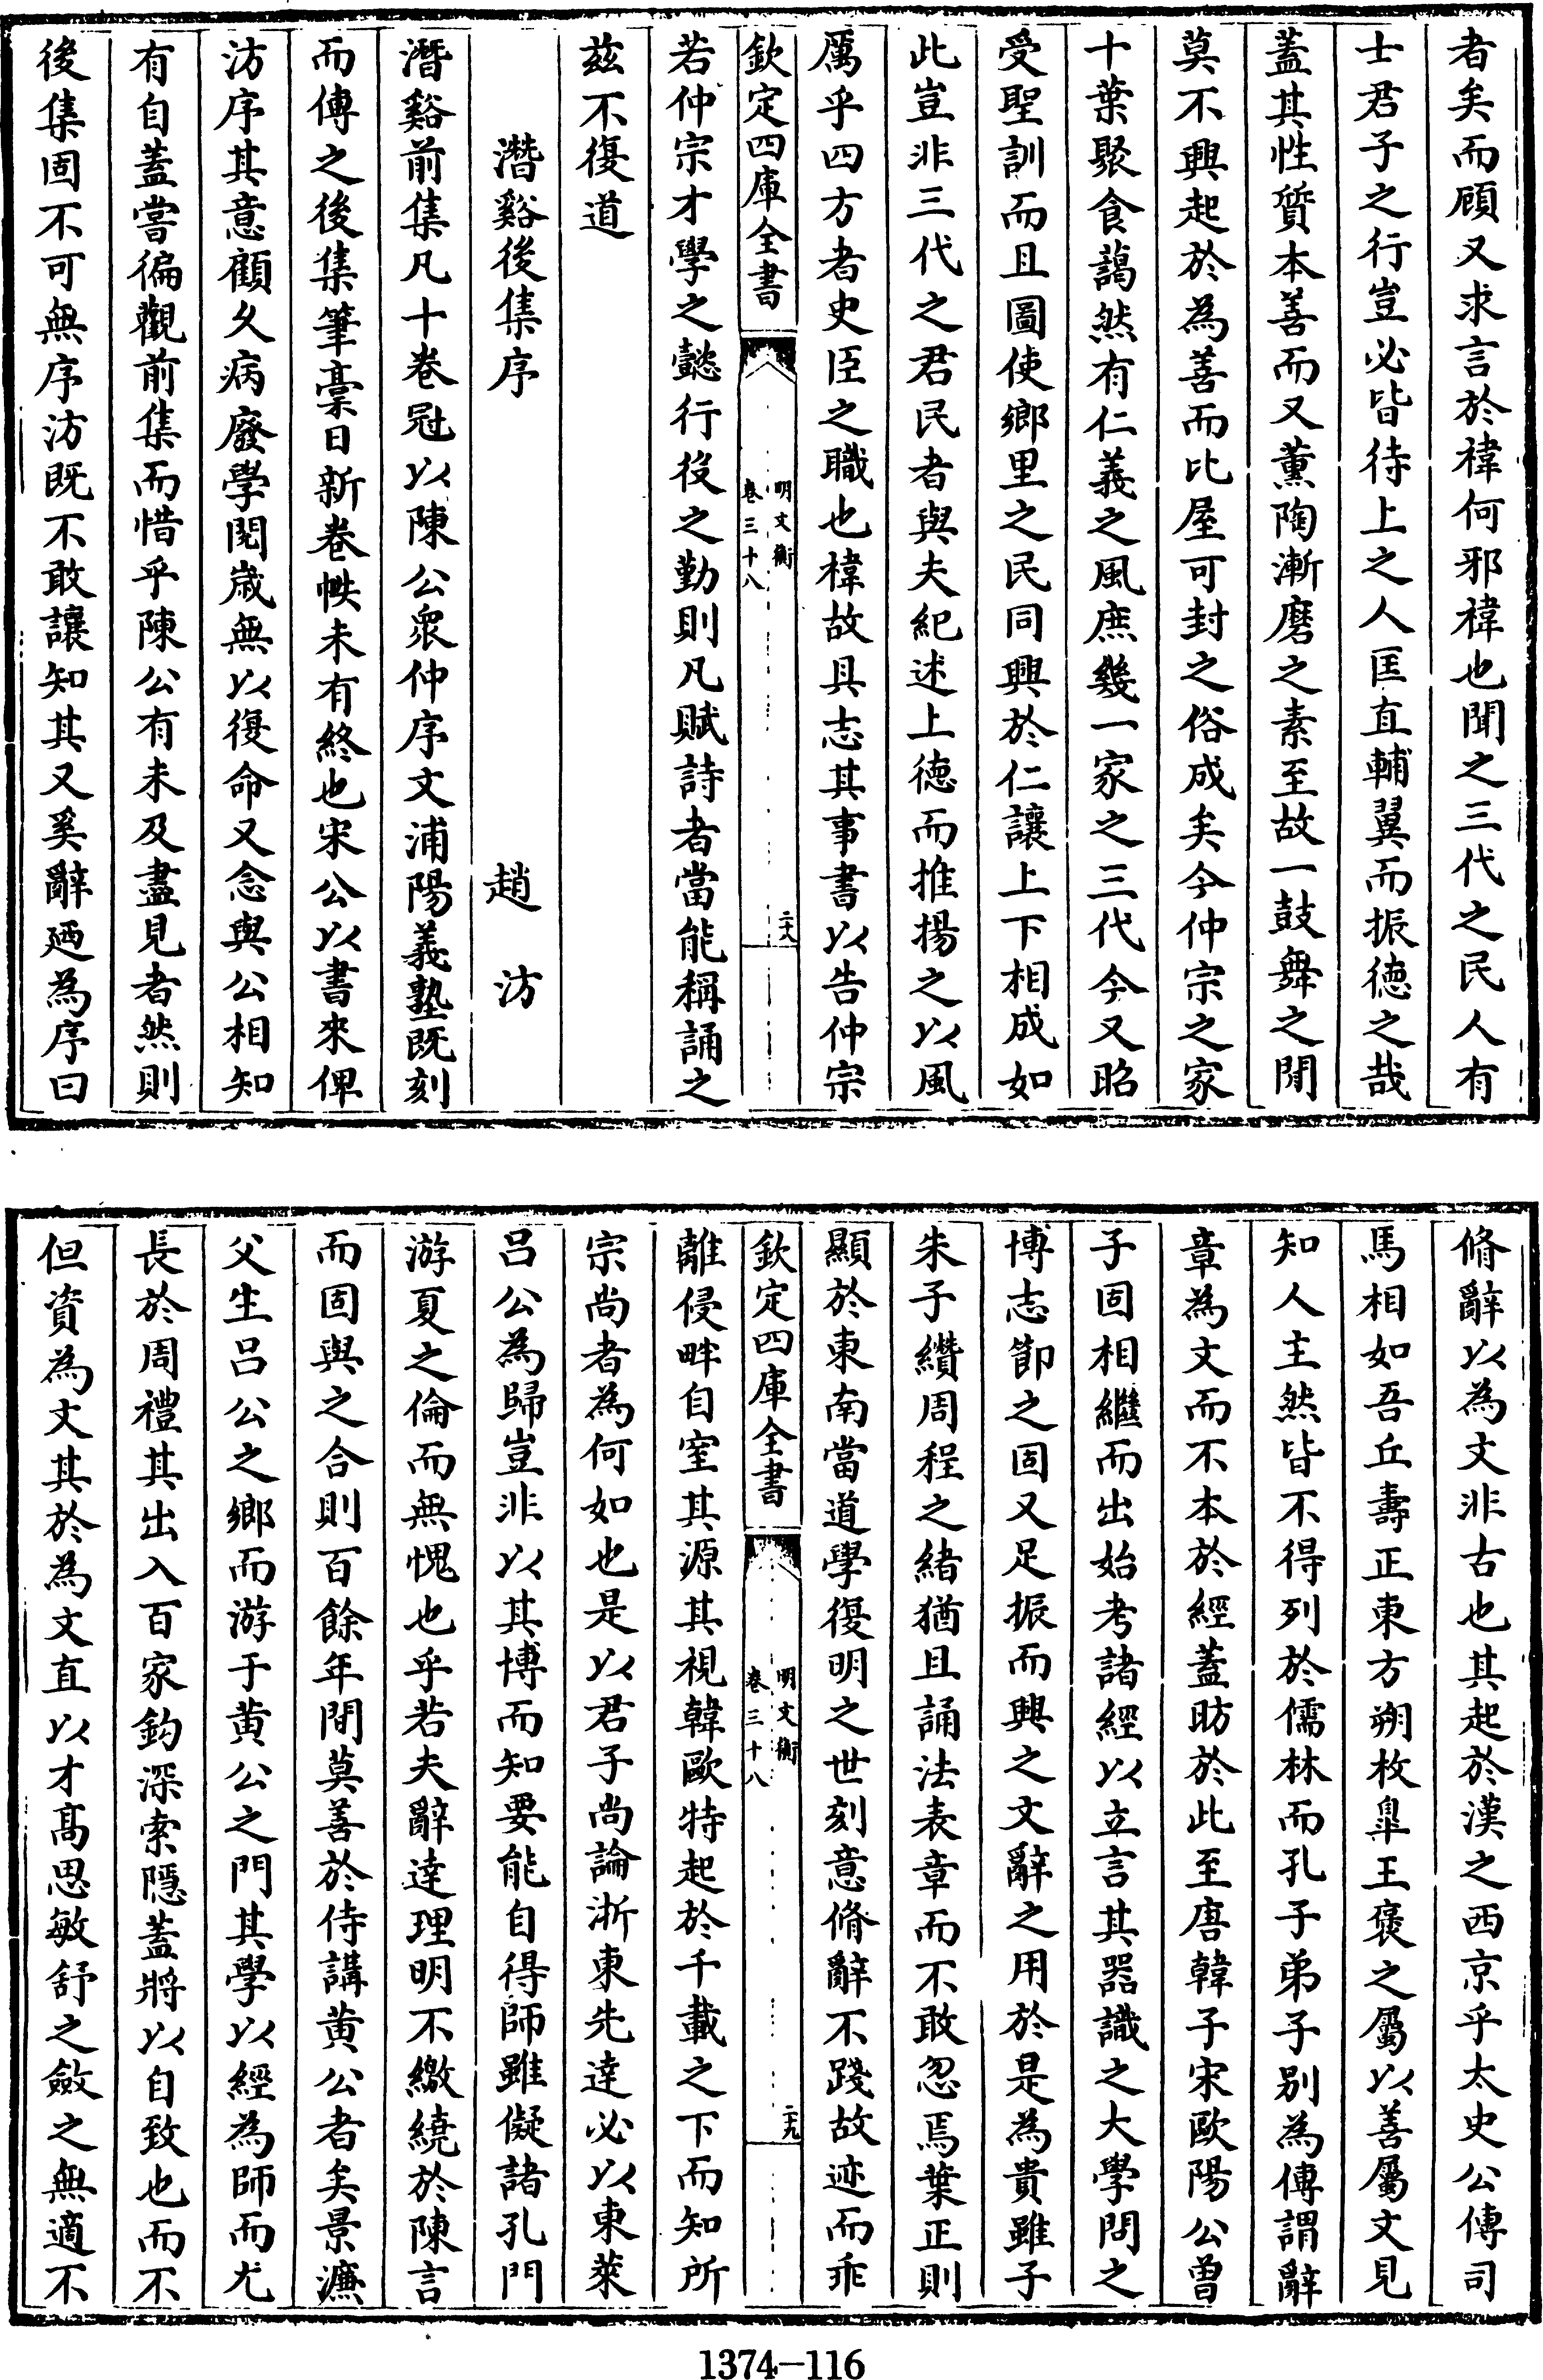 者矣而顧又求言於禕何邪禕也聞之三代之民人有
士君子之行豈必皆待上之人匡直輔翼而振德之哉
蓋其性質本善而又薰陶漸磨之素至故一鼓舞之閒
莫不興起於為善而比屋可封之俗成矣今仲宗之家
十葉聚食藹然有仁義之風庶幾一家之三代今又昭
受聖訓而且圖使鄉里之民同興於仁讓上下相成如
此豈非三代之君民者與夫紀述上德而推揚之以風
厲乎四方者史臣之職也禕故具志其事書以告仲宗
欽定四庫全書
明文衡
卷三十八
二十八
若仲宗才學之懿行役之勤則凡賦詩者當能稱誦之
茲不復道
潛谿後集序
趙汸
潛谿前集凡十卷冠以陳公衆仲序文浦陽義塾既刻
而傳之後集筆稾日新卷帙未有終也宋公以書來俾
汸序其意顧久病廢學閱歲無以復命又念與公相知
有自蓋嘗徧觀前集而惜乎陳公有未及盡見者然則
後集固不可無序汸既不敢讓知其又奚辭廼為序曰
脩辭以為文非古也其起於漢之西京乎太史公傳司
馬相如吾丘壽正東方朔枚臯王褒之屬以善屬文見
知人主然皆不得列於儒林而孔子弟子別為傳謂辭
章為文而不本於經蓋昉於此至唐韓子宋歐陽公曾
子固相繼而出始考諸經以立言其器識之大學問之
博志節之固又足振而興之文辭之用於是為貴雖子
朱子纘周程之緒猶且誦法表章而不敢忽焉葉正則
顯於東南當道學復明之世刻意脩辭不踐故迹而乖
欽定四庫全書
明文衡
卷三十八
二十九
離侵畔自室其源其視韓歐特起於千載之下而知所
宗尚者為何如也是以君子尚論浙東先達必以東萊
呂公為歸豈非以其博而知要能自得師雖儗諸孔門
游夏之倫而無愧也乎若夫辭達理明不繳繞於陳言
而固與之合則百餘年間莫善於侍講黄公者矣景濂
父生呂公之鄉而游于黄公之門其學以經為師而尤
長於周禮其出入百家鈎深索隱蓋將以自致也而不
但資為文其於為文直以才髙思敏舒之斂之無適不
1374-116